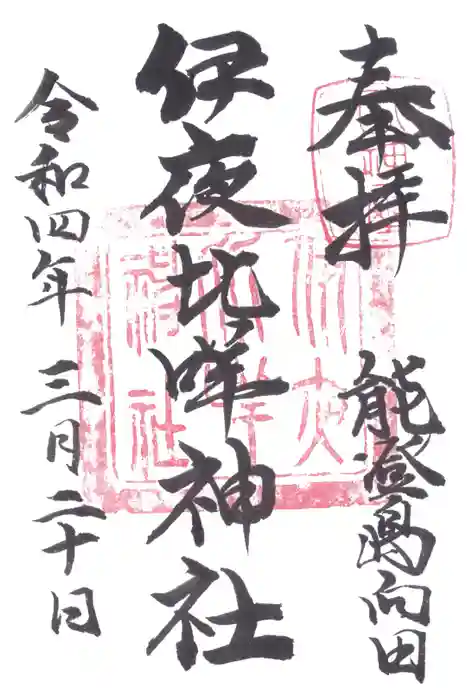 奉拝
能登島向田
伊夜比咩神社
令和四年 三月二十日